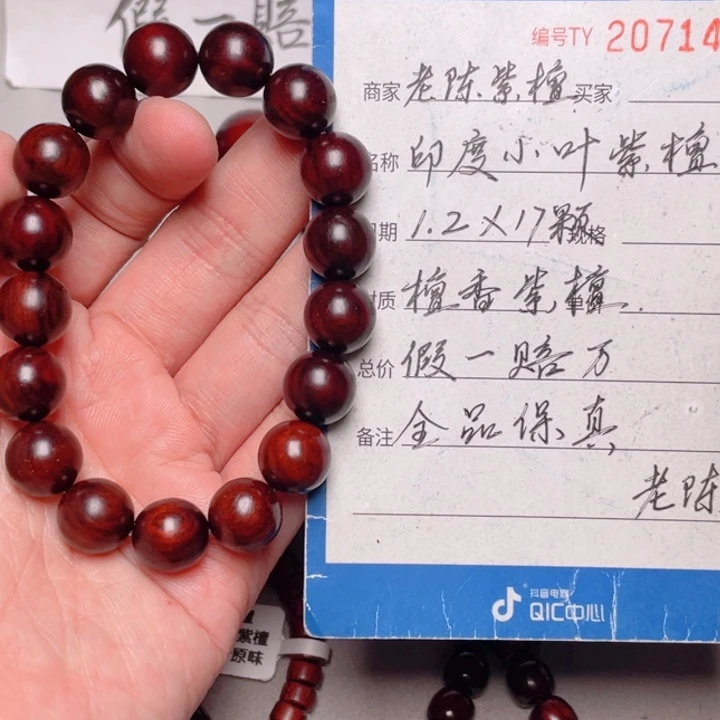 假一赔
编号TY 20714
商家 老陈紫檀 买家
名称 印度小叶紫檀
期 1.2×17颗 规格
质 檀香紫檀.
总价 假一赔万
备注 全品保真
老陈
抖音电商
QIC中心
紫檀
原味